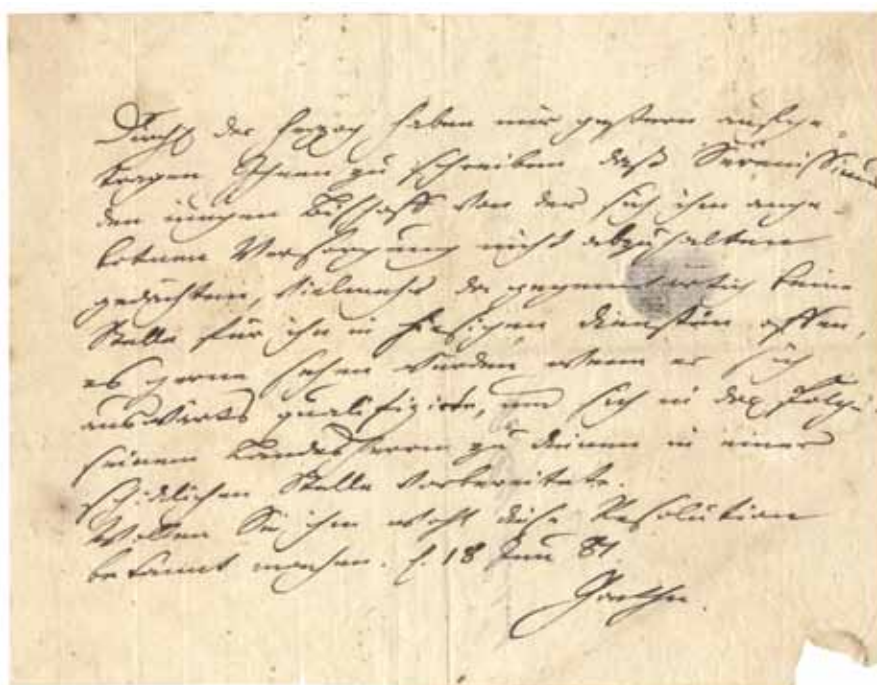 Durchl. der Herzog haben mir gestern aufge-
tragen Ihnen zu schreiben daß Serenissimus
den jungen Bischoff von der sich ihm ange-
botnen Versorgung nicht abzuhalten
gedächten, vielmehr da gegenwärtig keine
Stelle für ihn in hiesigen Diensten offen,
es gerne sehen würden wenn er sich
auswärts qualifizirte, und sich in der Folge
seinem Landesherrn zu dienen in einer
schicklichen Stelle vorbereitete.
Wollen Sie ihm wohl diese Resolution
bekannt machen. d. 18 Juni 81
Goethe.